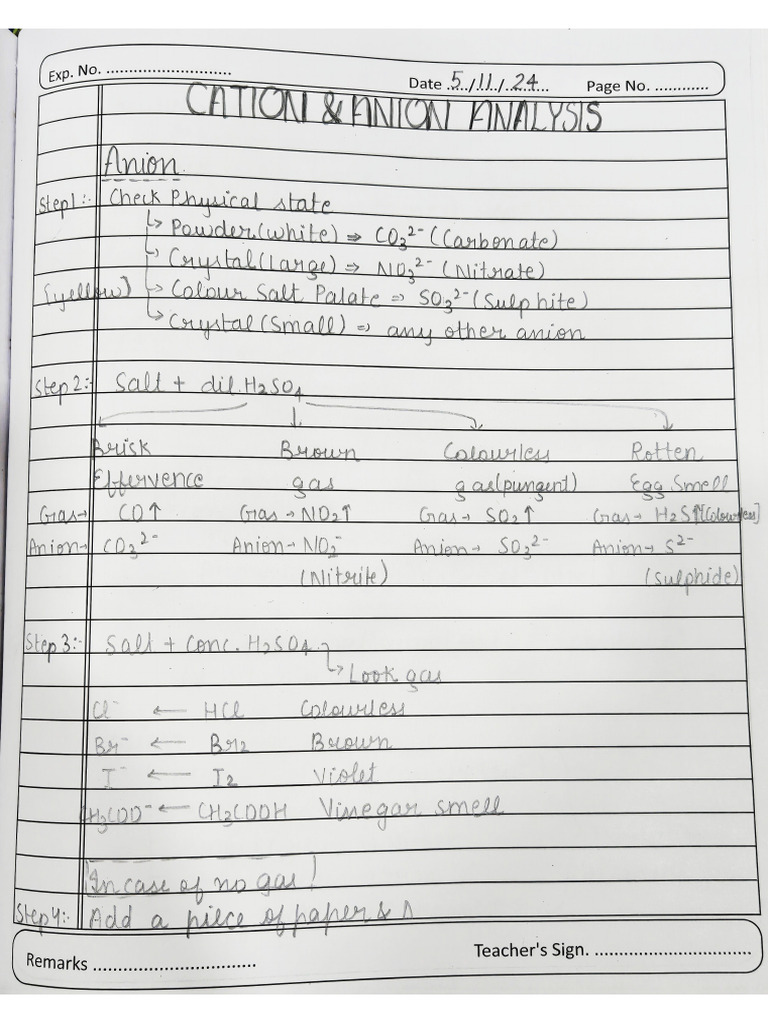 Exp. No. ............................
Date 5/11/24 Page No. ............
CATION & ANION ANALYSIS
Anion
Step1:- Check Physical state
↳ Powder(white) ⇒ CO₃²⁻ (Carbonate)
↳ Crystal(Large) ⇒ NO₃²⁻ (Nitrate)
(yellow) ↳ Colour Salt Palate ⇒ SO₃²⁻ (Sulphite)
↳ Crystal(Small) ⇒ any other anion
Step2:- Salt + dil. H₂SO₄
Brisk Brown Colourless Rotten
Effervence gas gas(pungent) Egg Smell
Gas→ CO↑ Gas→NO₂↑ Gas→ SO₂↑ Gas→ H₂S↑[Colourless]
Anion→ CO₃²⁻ Anion→ NO₂⁻ Anion→ SO₃²⁻ Anion→ S²⁻
(Nitrite) (Sulphide)
Step 3:- Salt + Conc. H₂SO₄
↳ Look gas
Cl⁻ ← HCl Colourless
Br⁻ ← Br₂ Brown
I⁻ ← I₂ Violet
CH₃COO⁻ ← CH₃COOH Vinegar smell
In case of no gas!
Step4:- Add a piece of paper & Δ
Remarks ................................
Teacher's Sign. ................................